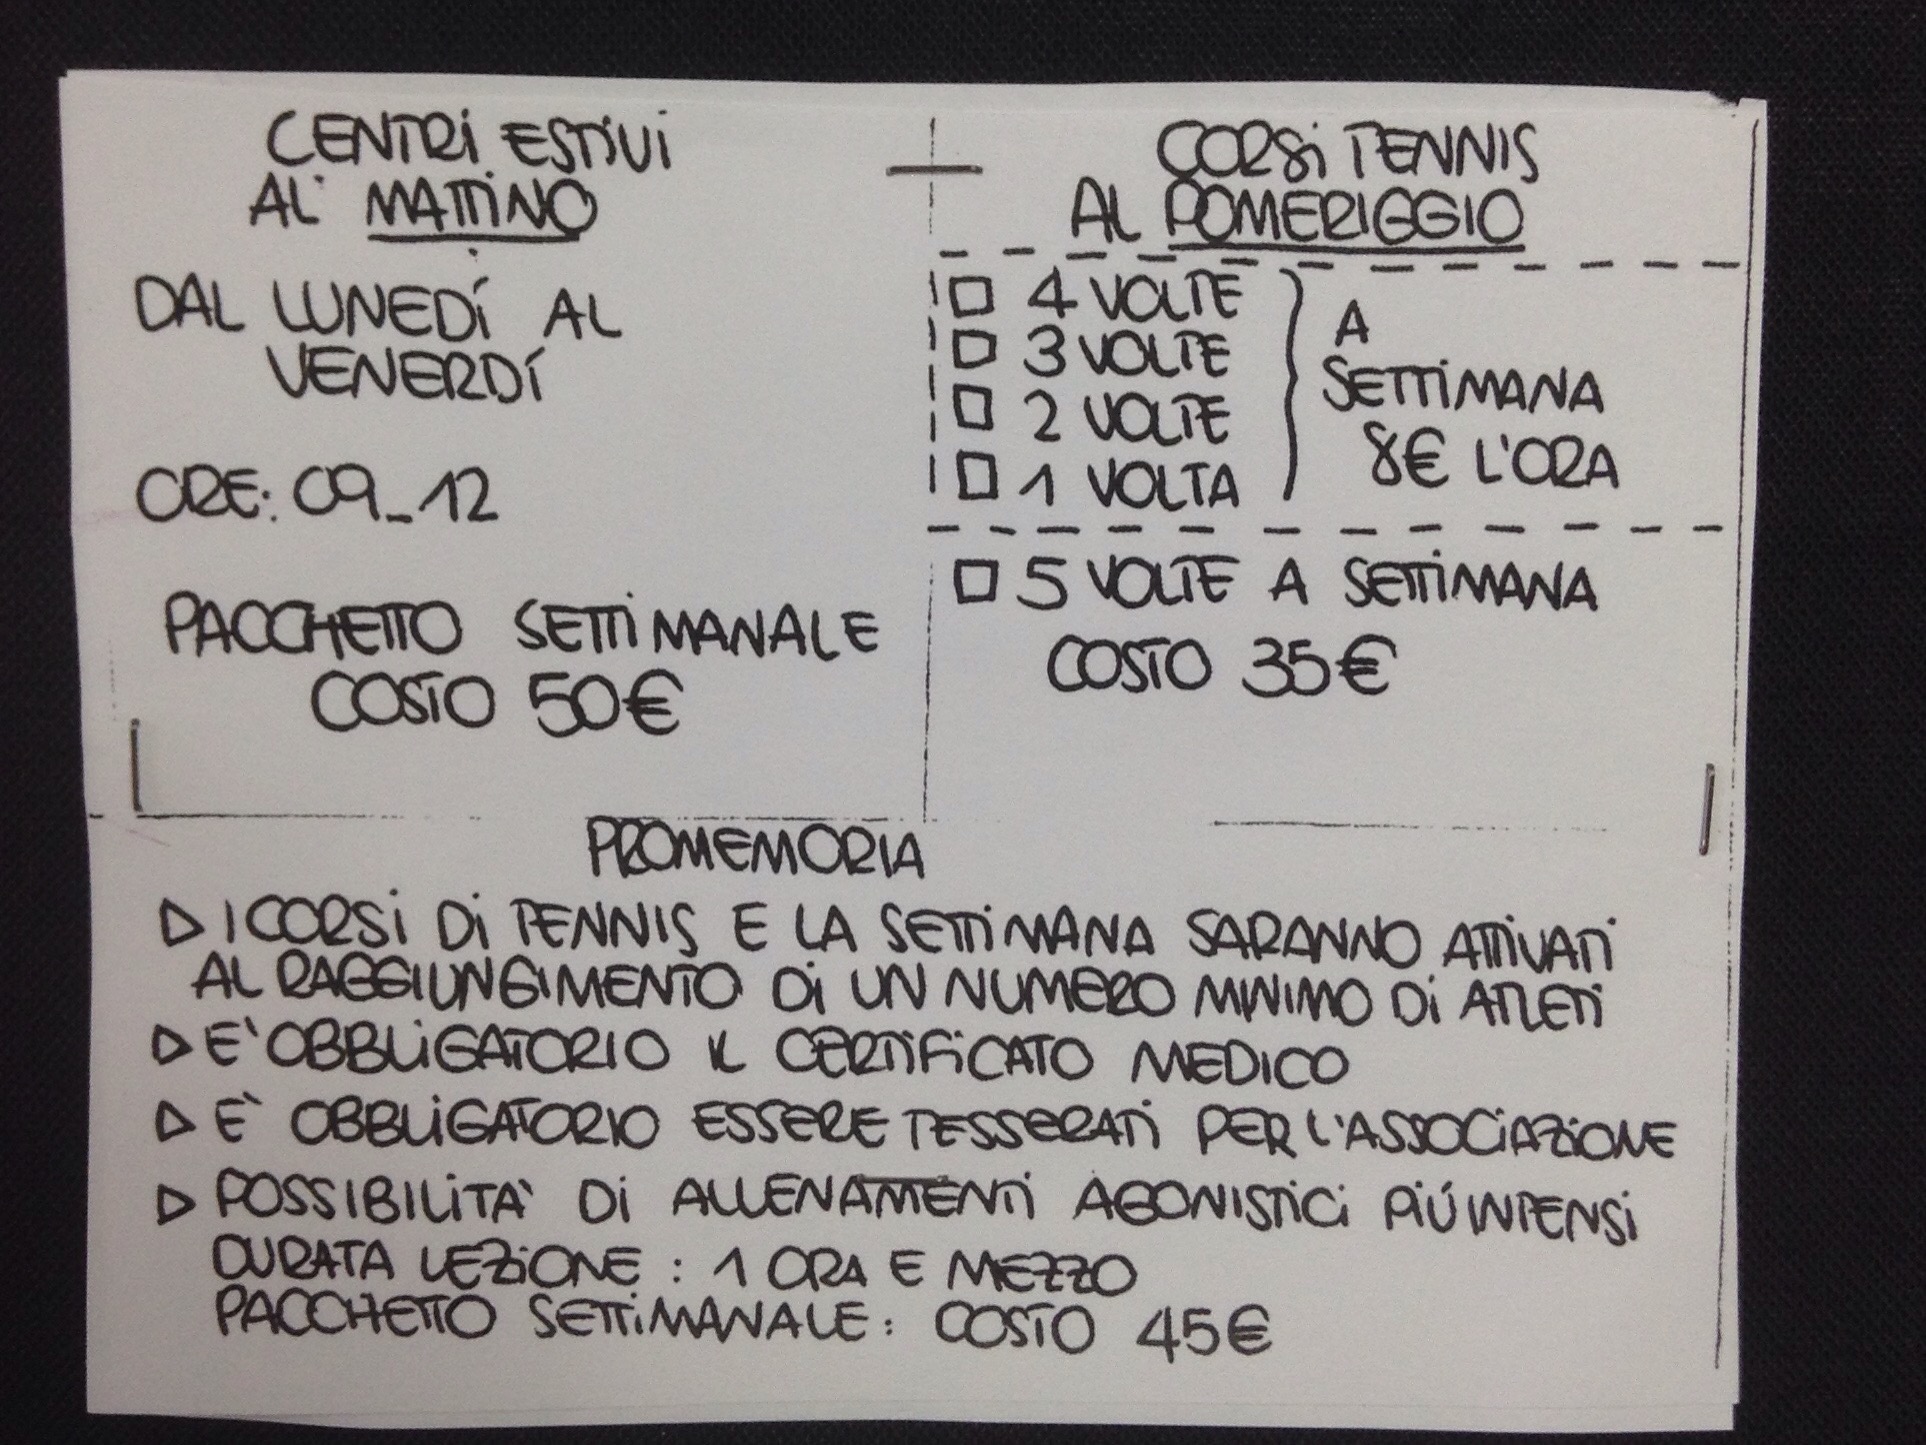 CENTRI ESTIVI
AL MATTINO
DAL LUNEDÍ AL
VENERDÍ
ORE: 09_12
PACCHETTO SETTIMANALE
COSTO 50€
CORSI TENNIS
AL POMERIGGIO
4 VOLTE
3 VOLTE
2 VOLTE
1 VOLTA
A
SETTIMANA
8€ L'ORA
5 VOLTE A SETTIMANA
COSTO 35€
PROMEMORIA
▷ I CORSI DI TENNIS E LA SETTIMANA SARANNO ATTIVATI
AL RAGGIUNGIMENTO DI UN NUMERO MINIMO DI ATLETI
▷ E' OBBLIGATORIO IL CERTIFICATO MEDICO
▷ E' OBBLIGATORIO ESSERE TESSERATI PER L'ASSOCIAZIONE
▷ POSSIBILITA' DI ALLENAMENTI AGONISTICI PIÚ INTENSI
DURATA LEZIONE : 1 ORA E MEZZO
PACCHETTO SETTIMANALE : COSTO 45€